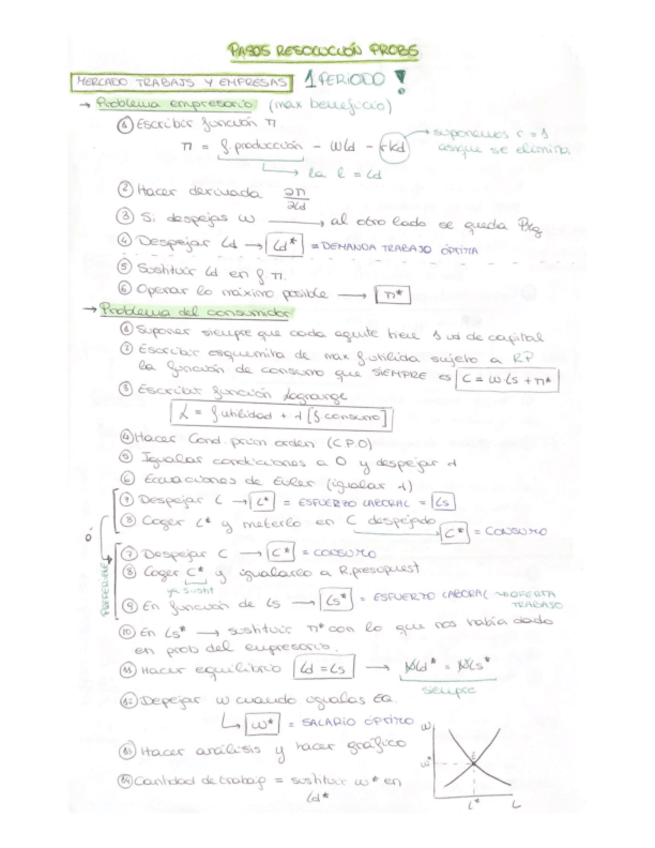 PASOS RESOLUCIÓN PROBS
MERCADO TRABAJO Y EMPRESAS 1 PERIODO!
→ Problema empresario (max beneficio)
① Escribir función π
π = f. producción - wLd - rkd → suponemos r = 1 asique se elimina
↳ la l = Ld
② Hacer derivada ∂π/∂Ld
③ Si despejas w → al otro lado se queda
④ Despejar Ld → Ld* = DEMANDA TRABAJO ÓPTIMA
⑤ Sustituir Ld en f π.
⑥ Operar lo máximo posible → π*
→ Problema del consumidor
① Suponer siempre que cada agente tiene 1 ud de capital
② Escribir esquemita de max f. utilida sujeto a RP
la función de consumo que SIEMPRE es C = w·Ls + π*
③ Escribir función Lagrange
L = f utilidad + λ [f consumo]
④ Hacer Cond. primn orden (C.P.O)
⑤ Igualar condiciones a 0 y despejar λ
⑥ Ecuaciones de Euler (igualar λ)
⑦ Despejar L → L* = ESFUERZO LABORAL = Ls
⑧ Coger L* y meterlo en C despejado
C* = CONSUMO
ó
PREFERIBLE
⑦ Despejar C → C* = CONSUMO
⑧ Coger C* y igualarlo a R.presupuest
ya sustit
⑨ En función de Ls → Ls* = ESFUERZO LABORAL → OFERTA TRABAJO
⑩ En Ls* → sustituir π* con lo que nos había dado
en prob del empresario.
⑪ Hacer equilibrio Ld = Ls → NLd* = NLs*
siempre
⑫ Depejar w cuando igualas EQ.
↳ w* = SALARIO ÓPTIMO
⑬ Hacer análisis y hacer gráfico
⑭ Cantidad de trabajo = sustituir w* en
Ld*
w
w*
E
L*
L